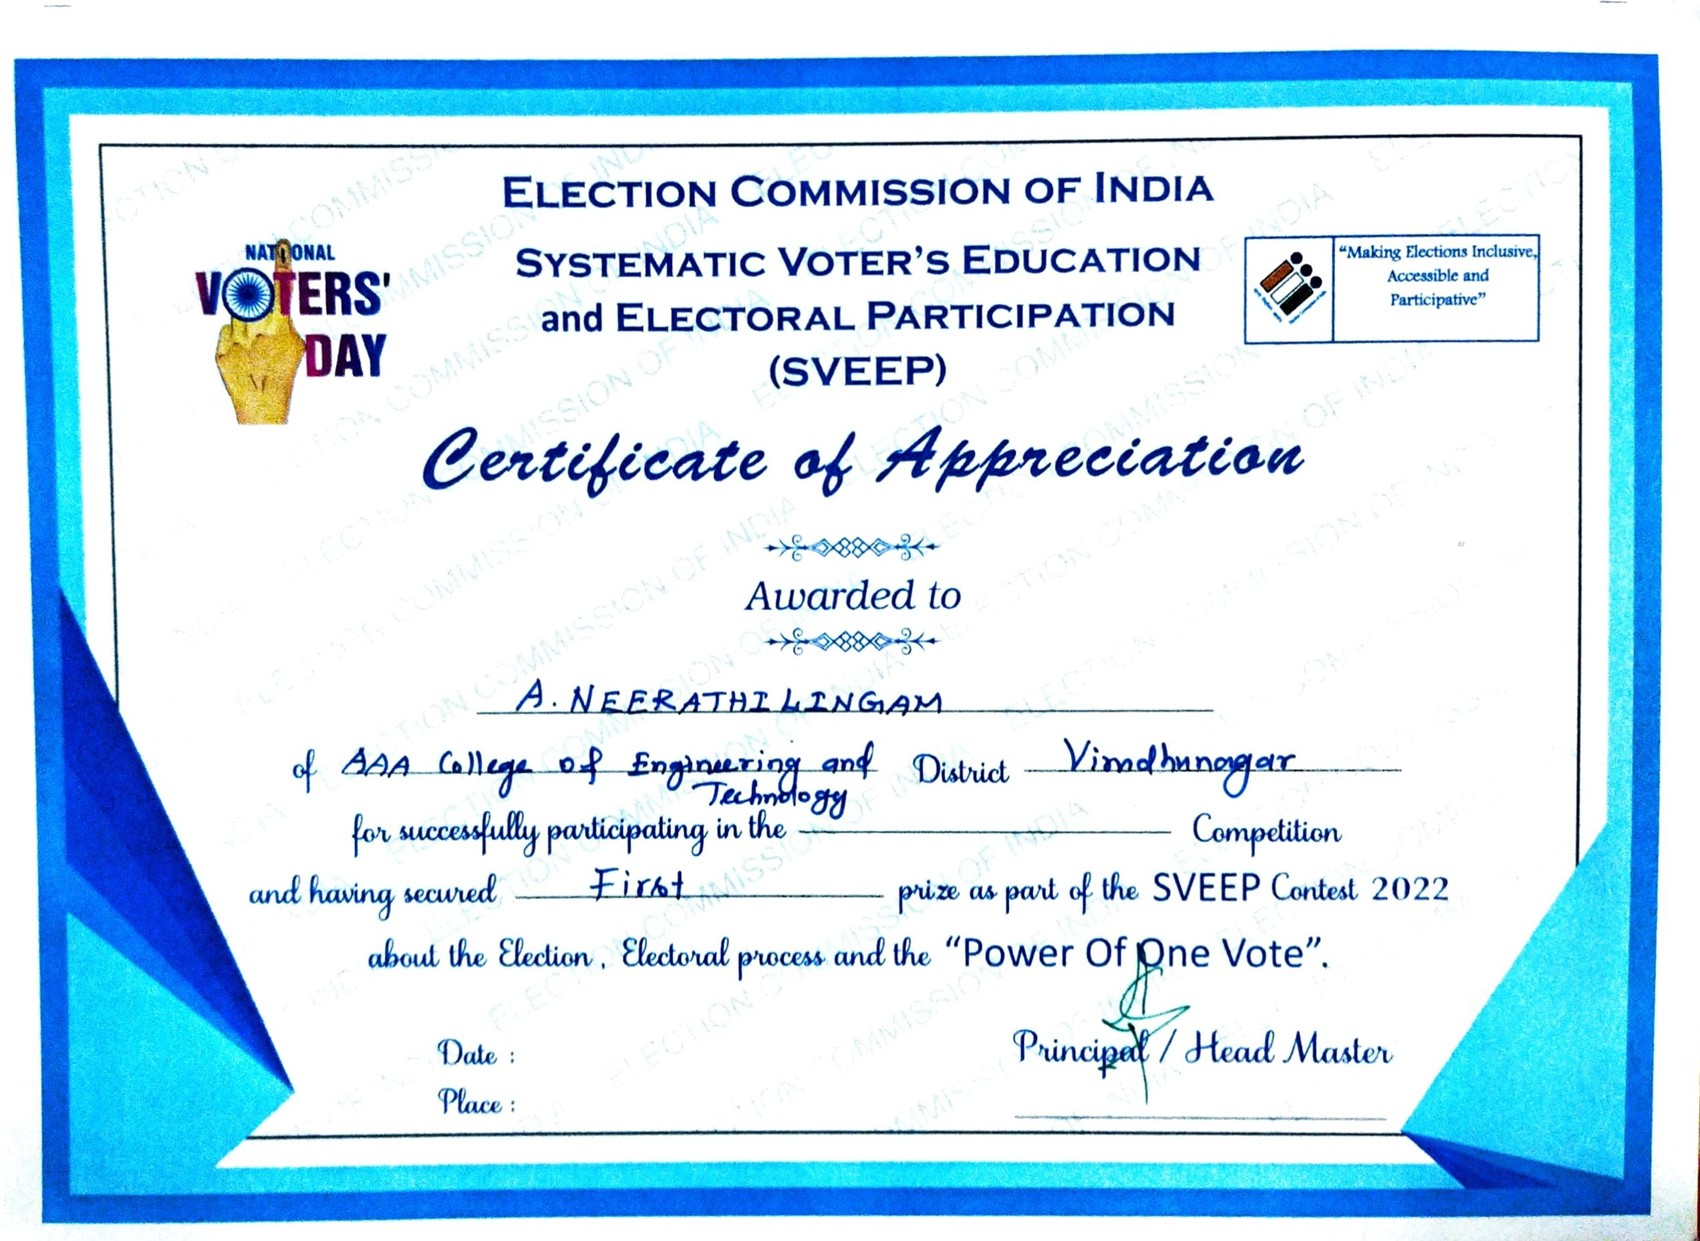 ELECTION COMMISSION OF INDIA
SYSTEMATIC VOTER'S EDUCATION
and ELECTORAL PARTICIPATION
(SVEEP)
NATIONAL
VOTERS'
DAY
“Making Elections Inclusive,
Accessible and
Participative”
Certificate of Appreciation
Awarded to
A. NEERATHILINGAM
of AAA College of Engineering and District Virudhunagar
Technology
for successfully participating in the Competition
and having secured First prize as part of the SVEEP Contest 2022
about the Election, Electoral process and the “Power Of One Vote”.
Date :
Principal / Head Master
Place :